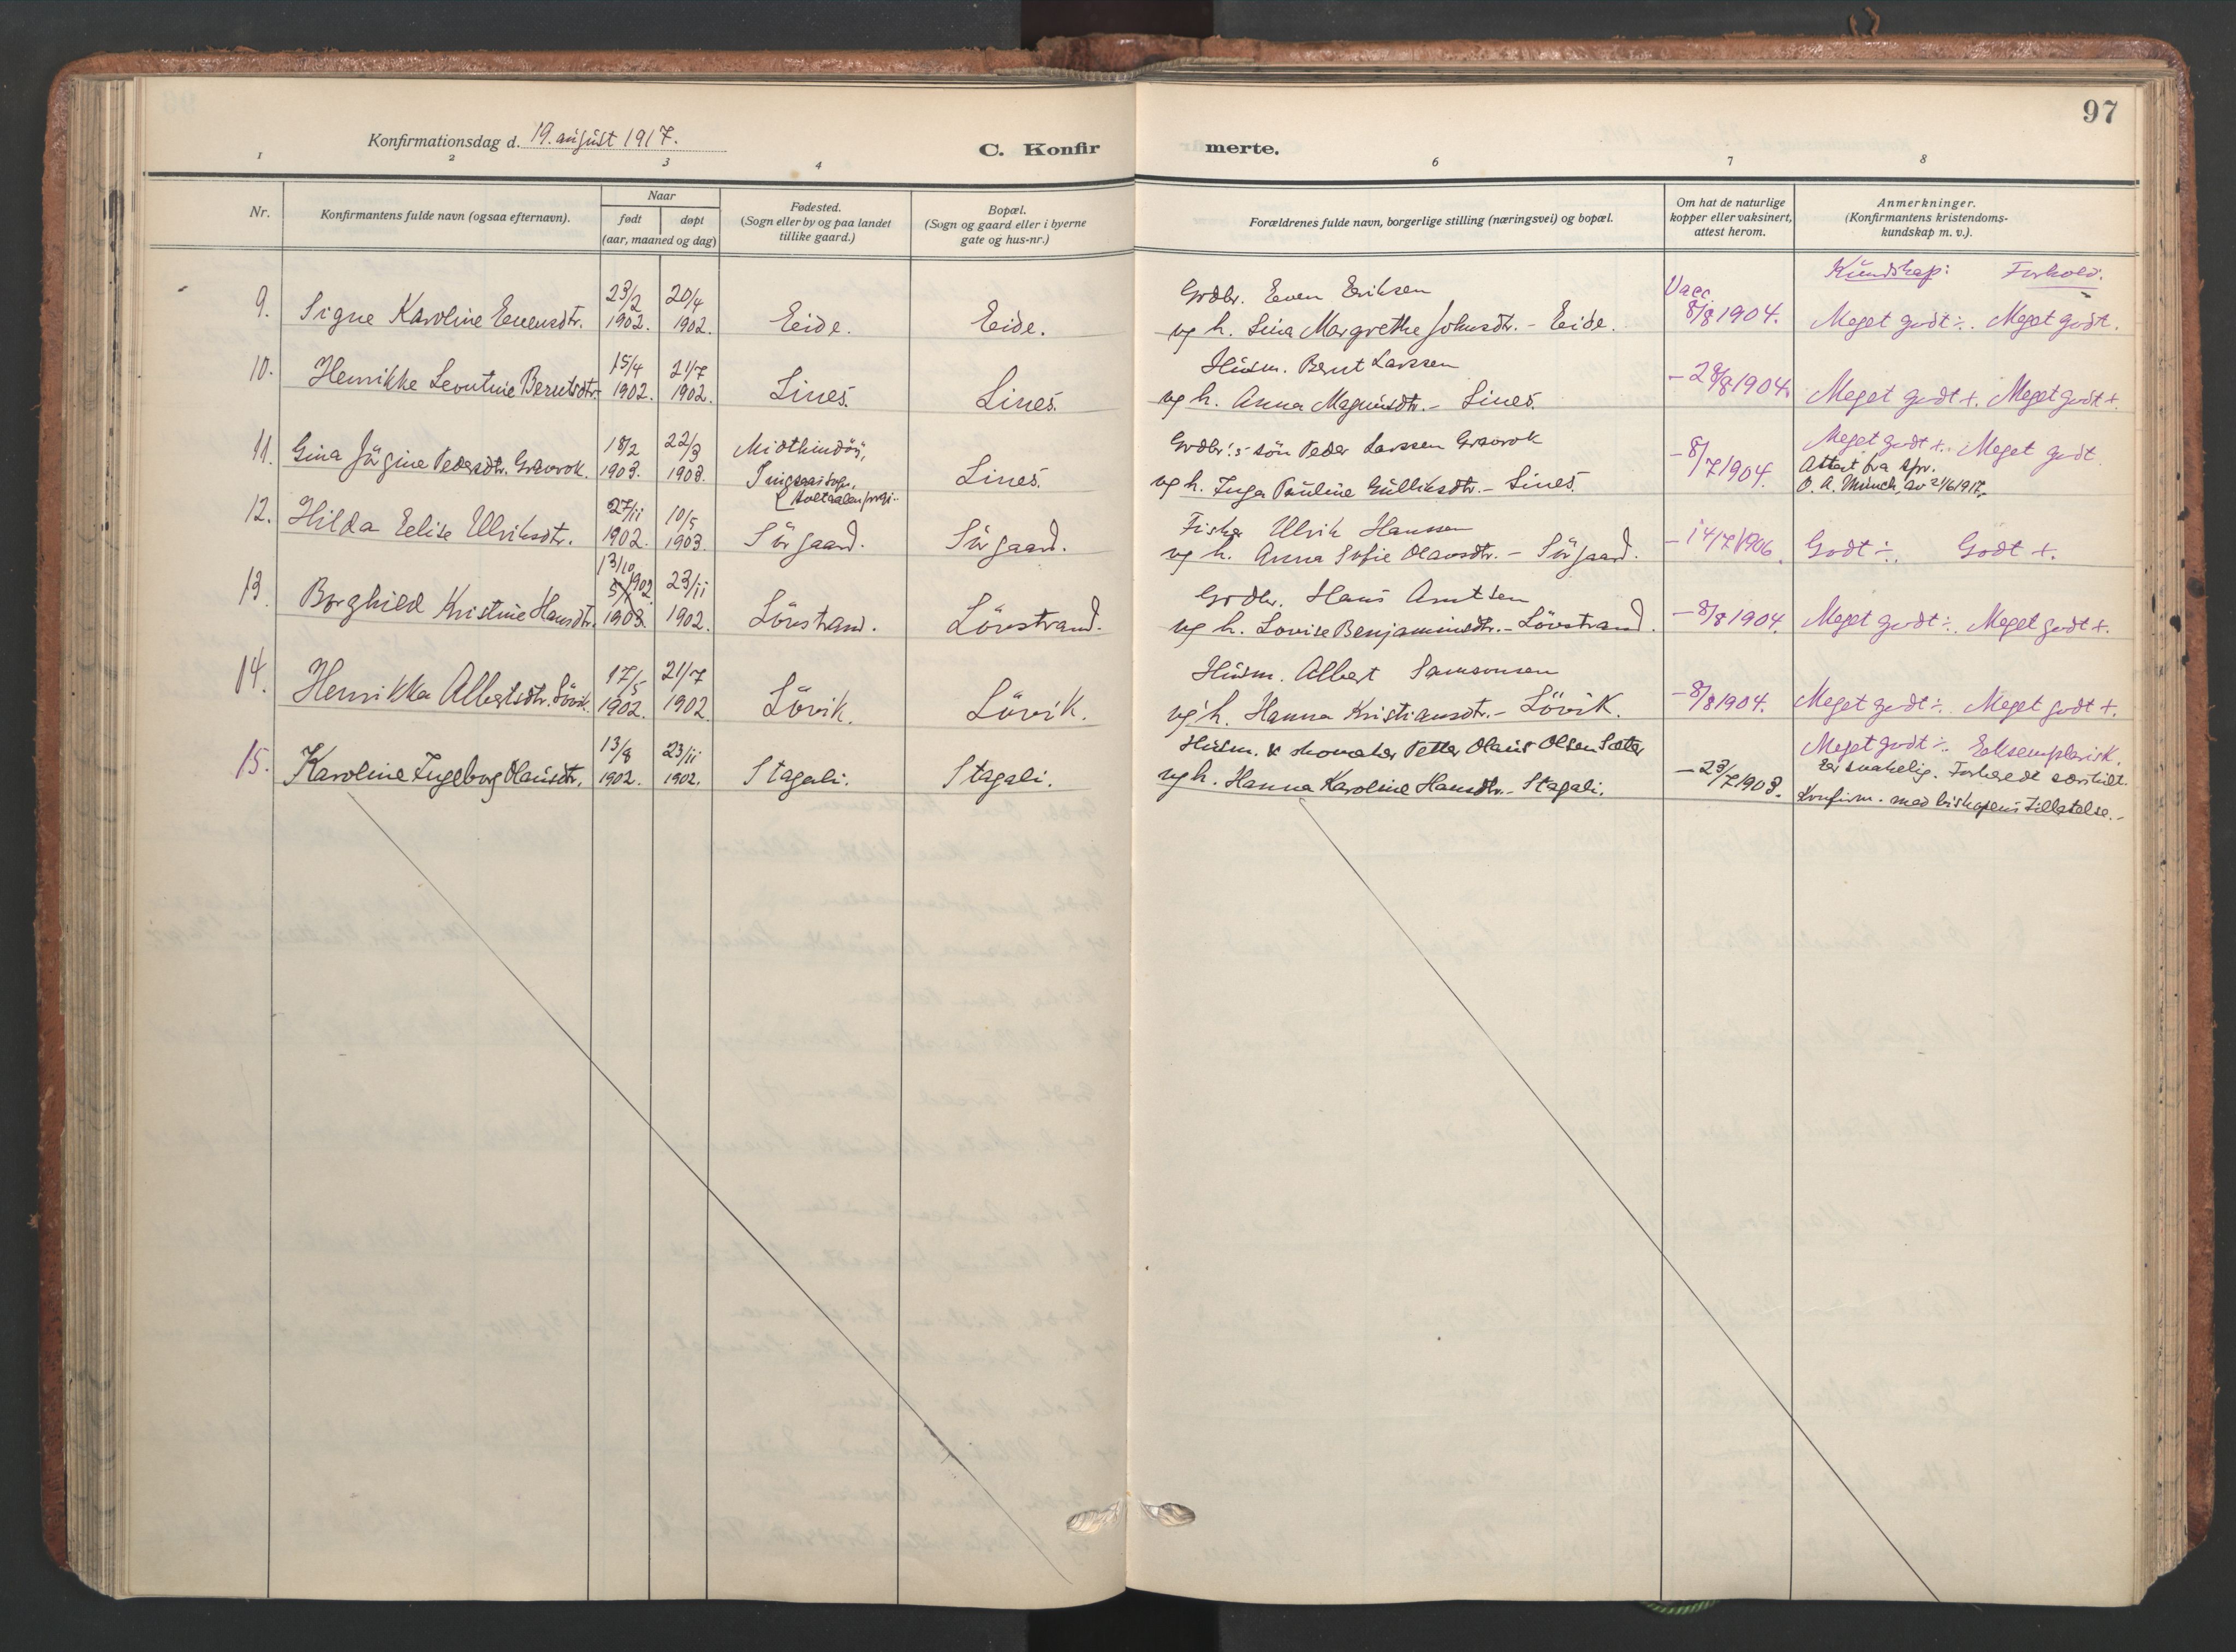 97
Konfirmationsdag d. 19. august 1917.
C. Konfirmerte.
1 2 3 4 6 7 8
Nr.
Konfirmantens fulde navn (ogsaa efternavn).
Naar
født døpt
(aar, maaned og dag)
Fødested.
(Sogn eller by og paa landet
tillike gaard.)
Bopæl.
(Sogn og gaard eller i byerne
gate og hus-nr.)
Forældrenes fulde navn, borgerlige stilling (næringsvei) og bopæl.
Om hat de naturlige
kopper eller vaksinert,
attest herom.
Anmerkninger.
(Konfirmantens kristendoms-
kundskap m. v.).
Kundskap: Forhold:
9. Signe Karoline Evensdtr. 23/2 1902. 20/4 1902. Eide. Eide.
Grdbr. Even Eriksen
og h. Lina Margrethe Johnsdtr. - Eide.
Vacc 8/8 1904. Meget godt ÷. Meget godt.
10. Henrikke Leontine Berntsdtr. 15/4 1902. 21/7 1902. Lines. Lines.
Husm. Bernt Larssen
og h. Anna Magnusdtr. - Lines.
- 28/8 1904. Meget godt +. Meget godt +.
11. Gina Jörgine Pedersdtr. Gravrok. 18/2 1903. 22/3 1903.
Lines.
Grdbr.'s sön Peder Larssen Gravrok
og h. Inga Pauline Gulliksdtr. - Lines.
- 8/7 1904. Meget godt +. Meget godt.
Attest fra spr.
O. A. Münch, av 21/6 1917.
12. Hilda Eelise Ulriksdtr. 27/11 1902. 10/5 1903. Sörgaard. Sörgaard.
Fisker Ulrik Hanssen
og h. Anna Sofie Olausdtr. - Sörgaard.
- 14/7 1906. Godt ÷. Godt +.
13. Borghild Kristine Hansdtr. 13/10 1902. 1903. 23/11 1902. Lövstrand. Lövstrand.
Grdbr. Hans Arntsen
og h. Lovise Benjaminsdtr. - Lövstrand.
- 8/8 1904. Meget godt ÷. Meget godt +.
14. Henrikka Albertsdtr. Lövik. 17/5 1902. 21/7 1902. Lövik. Lövik.
Husm. Albert Samsonsen
og h. Hanna Kristiansdtr. - Lövik.
- 8/8 1904. Meget godt ÷. Meget godt +.
15. Karoline Ingeborg Olausdtr. 13/8 1902. 23/11 1902. Stagali. Stagali.
Husm. & skomaker Petter Olaus Olsen Sæter
og h. Hanna Karoline Hansdtr. - Stagali.
- 23/7 1903. Meget godt ÷. Eeksemplarisk.
Er svakelig. Forberedt særskilt.
Konfirm. med biskopens tillatelse. -